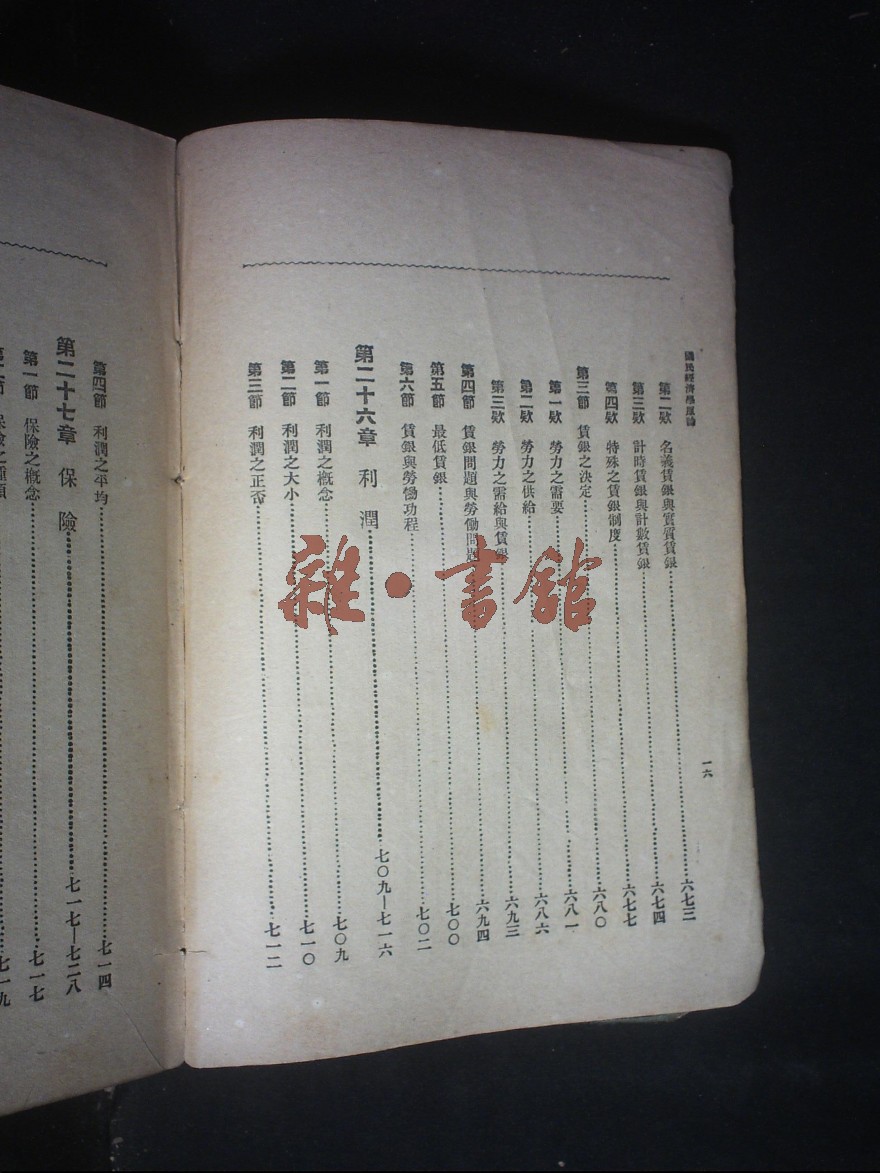 國民經濟學原論
一六
第二欵 名義賃銀與實質賃銀……六七三
第三欵 計時賃銀與計數賃銀……六七四
第四欵 特殊之賃銀制度……六七七
第三節 賃銀之決定……六八〇
第一欵 勞力之需要……六八一
第二欵 勞力之供給……六八六
第三欵 勞力之需給與賃銀……六九三
第四節 賃銀問題與勞働問題……六九四
第五節 最低賃銀……七〇〇
第六節 賃銀與勞働功程……七〇二
第二十六章 利潤……七〇九—七一六
第一節 利潤之概念……七〇九
第二節 利潤之大小……七一〇
第三節 利潤之正否……七一二
第四節 利潤之平均……七一四
第二十七章 保險……七一七—七二八
第一節 保險之概念……七一七
第二節 保險之種類……七一九
雜·書館